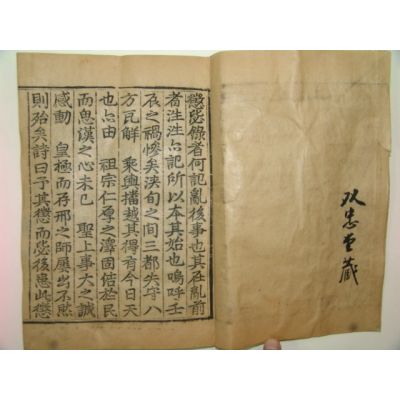 双忠堂藏
懲毖錄者何記亂後事也其在亂前
者往往亦記所以本其始也嗚呼壬
辰之禍慘矣浹旬之間三都失守八
方瓦解 乘輿播越其得有今日天
也亦由 祖宗仁厚之澤固結於民
而思漢之心未已 聖上事大之誠
感動 皇極而存邢之師屢出不然
則殆矣詩曰予其懲而毖後患此懲